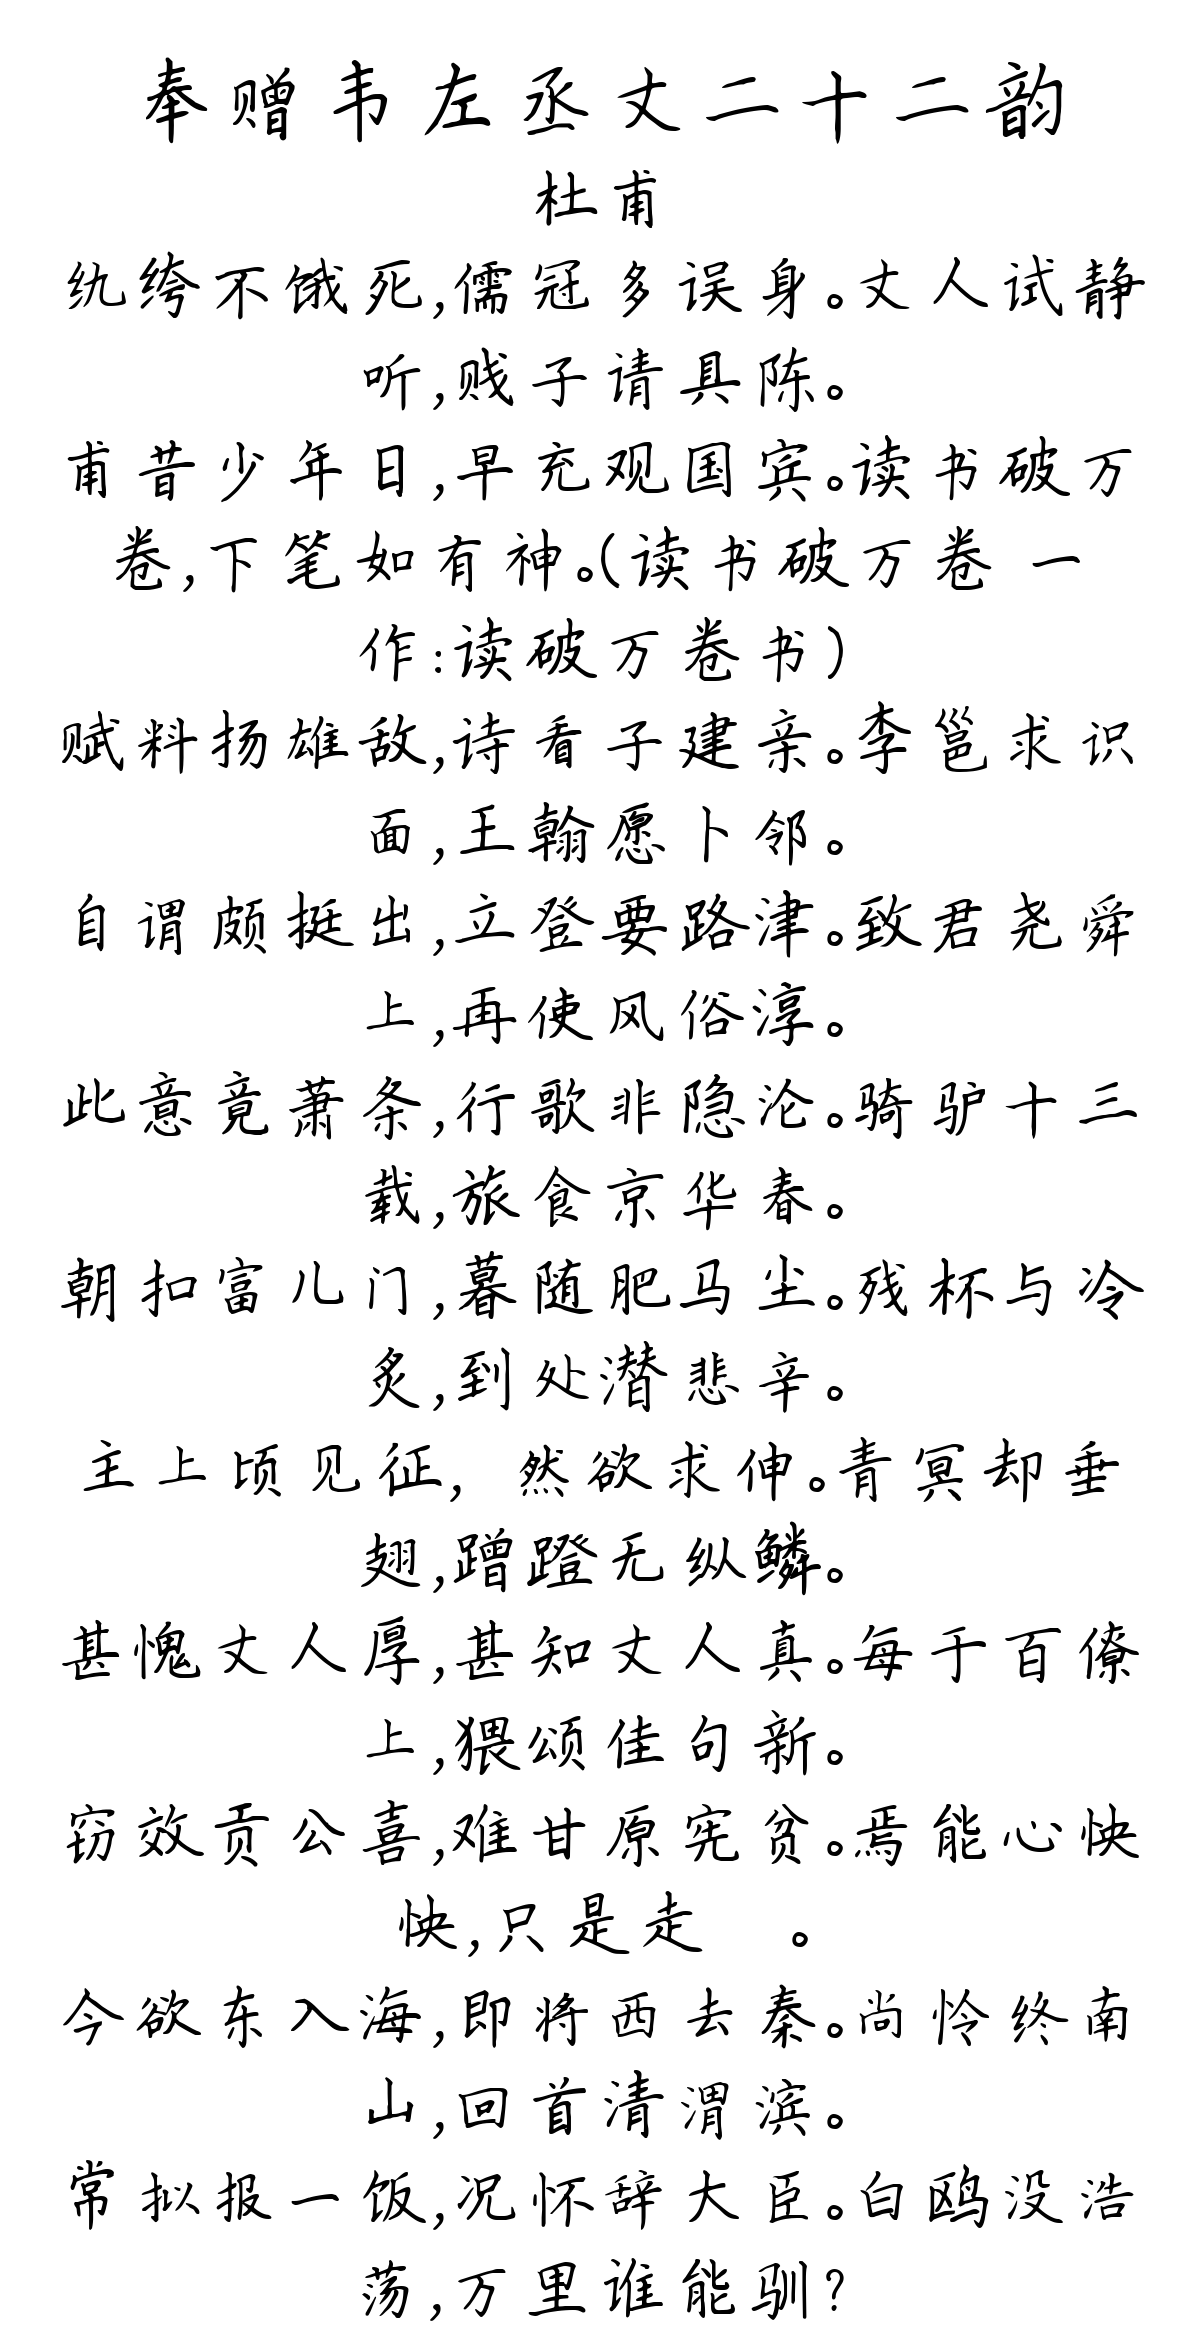 奉赠韦左丞丈二十二韵
杜甫
纨绔不饿死,儒冠多误身。丈人试静
听,贱子请具陈。
甫昔少年日,早充观国宾。读书破万
卷,下笔如有神。(读书破万卷 一
作:读破万卷书)
赋料扬雄敌,诗看子建亲。李邕求识
面,王翰愿卜邻。
自谓颇挺出,立登要路津。致君尧舜
上,再使风俗淳。
此意竟萧条,行歌非隐沦。骑驴十三
载,旅食京华春。
朝扣富儿门,暮随肥马尘。残杯与冷
炙,到处潜悲辛。
主上顷见征, 然欲求伸。青冥却垂
翅,蹭蹬无纵鳞。
甚愧丈人厚,甚知丈人真。每于百僚
上,猥颂佳句新。
窃效贡公喜,难甘原宪贫。焉能心怏
怏,只是走 。
今欲东入海,即将西去秦。尚怜终南
山,回首清渭滨。
常拟报一饭,况怀辞大臣。白鸥没浩
荡,万里谁能驯?